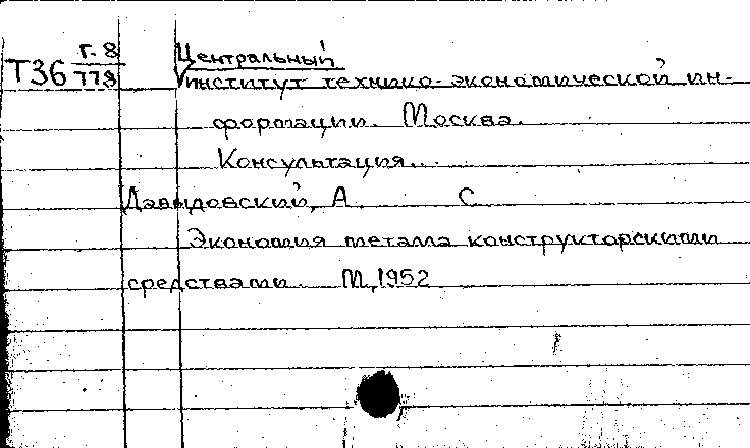 Т36 Г. 8
773
Центральный
институт технико-экономической ин-
формации. Москва.
Консультация...
Давыдовский, А. С
Экономия метала конструкторскими
средствами. М, 1952